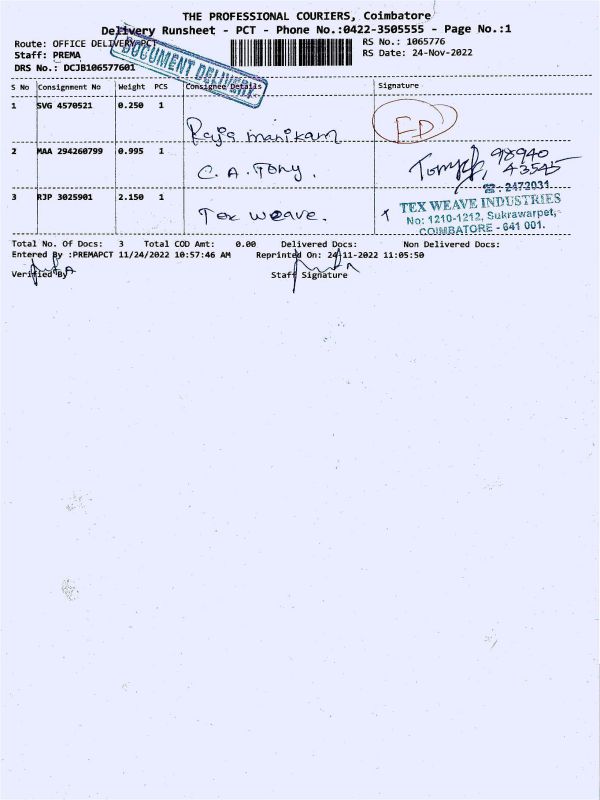 THE PROFESSIONAL COURIERS, Coimbatore
Delivery Runsheet - PCT - Phone No.:0422-3505555 - Page No.:1
Route: OFFICE DELIVERY PCT
RS No.: 1065776
Staff: PREMA
RS Date: 24-Nov-2022
DRS No.: DCJB106577601
DOCUMENT DELIVERY
S No Consignment No Weight PCS Consignee Details Signature
1 SVG 4570521 0.250 1
Raja manikam ED
2 MAA 294260799 0.995 1
C. A. Tony. 98940
43545
☎: 2472031
3 RJP 3025901 2.150 1
Tex weave.
TEX WEAVE INDUSTRIES
No: 1210-1212, Sukrawarpet,
COIMBATORE - 641 001.
Total No. Of Docs: 3 Total COD Amt: 0.00 Delivered Docs: Non Delivered Docs:
Entered By :PREMAPCT 11/24/2022 10:57:46 AM Reprinted On: 24-11-2022 11:05:50
Verified By Staff Signature